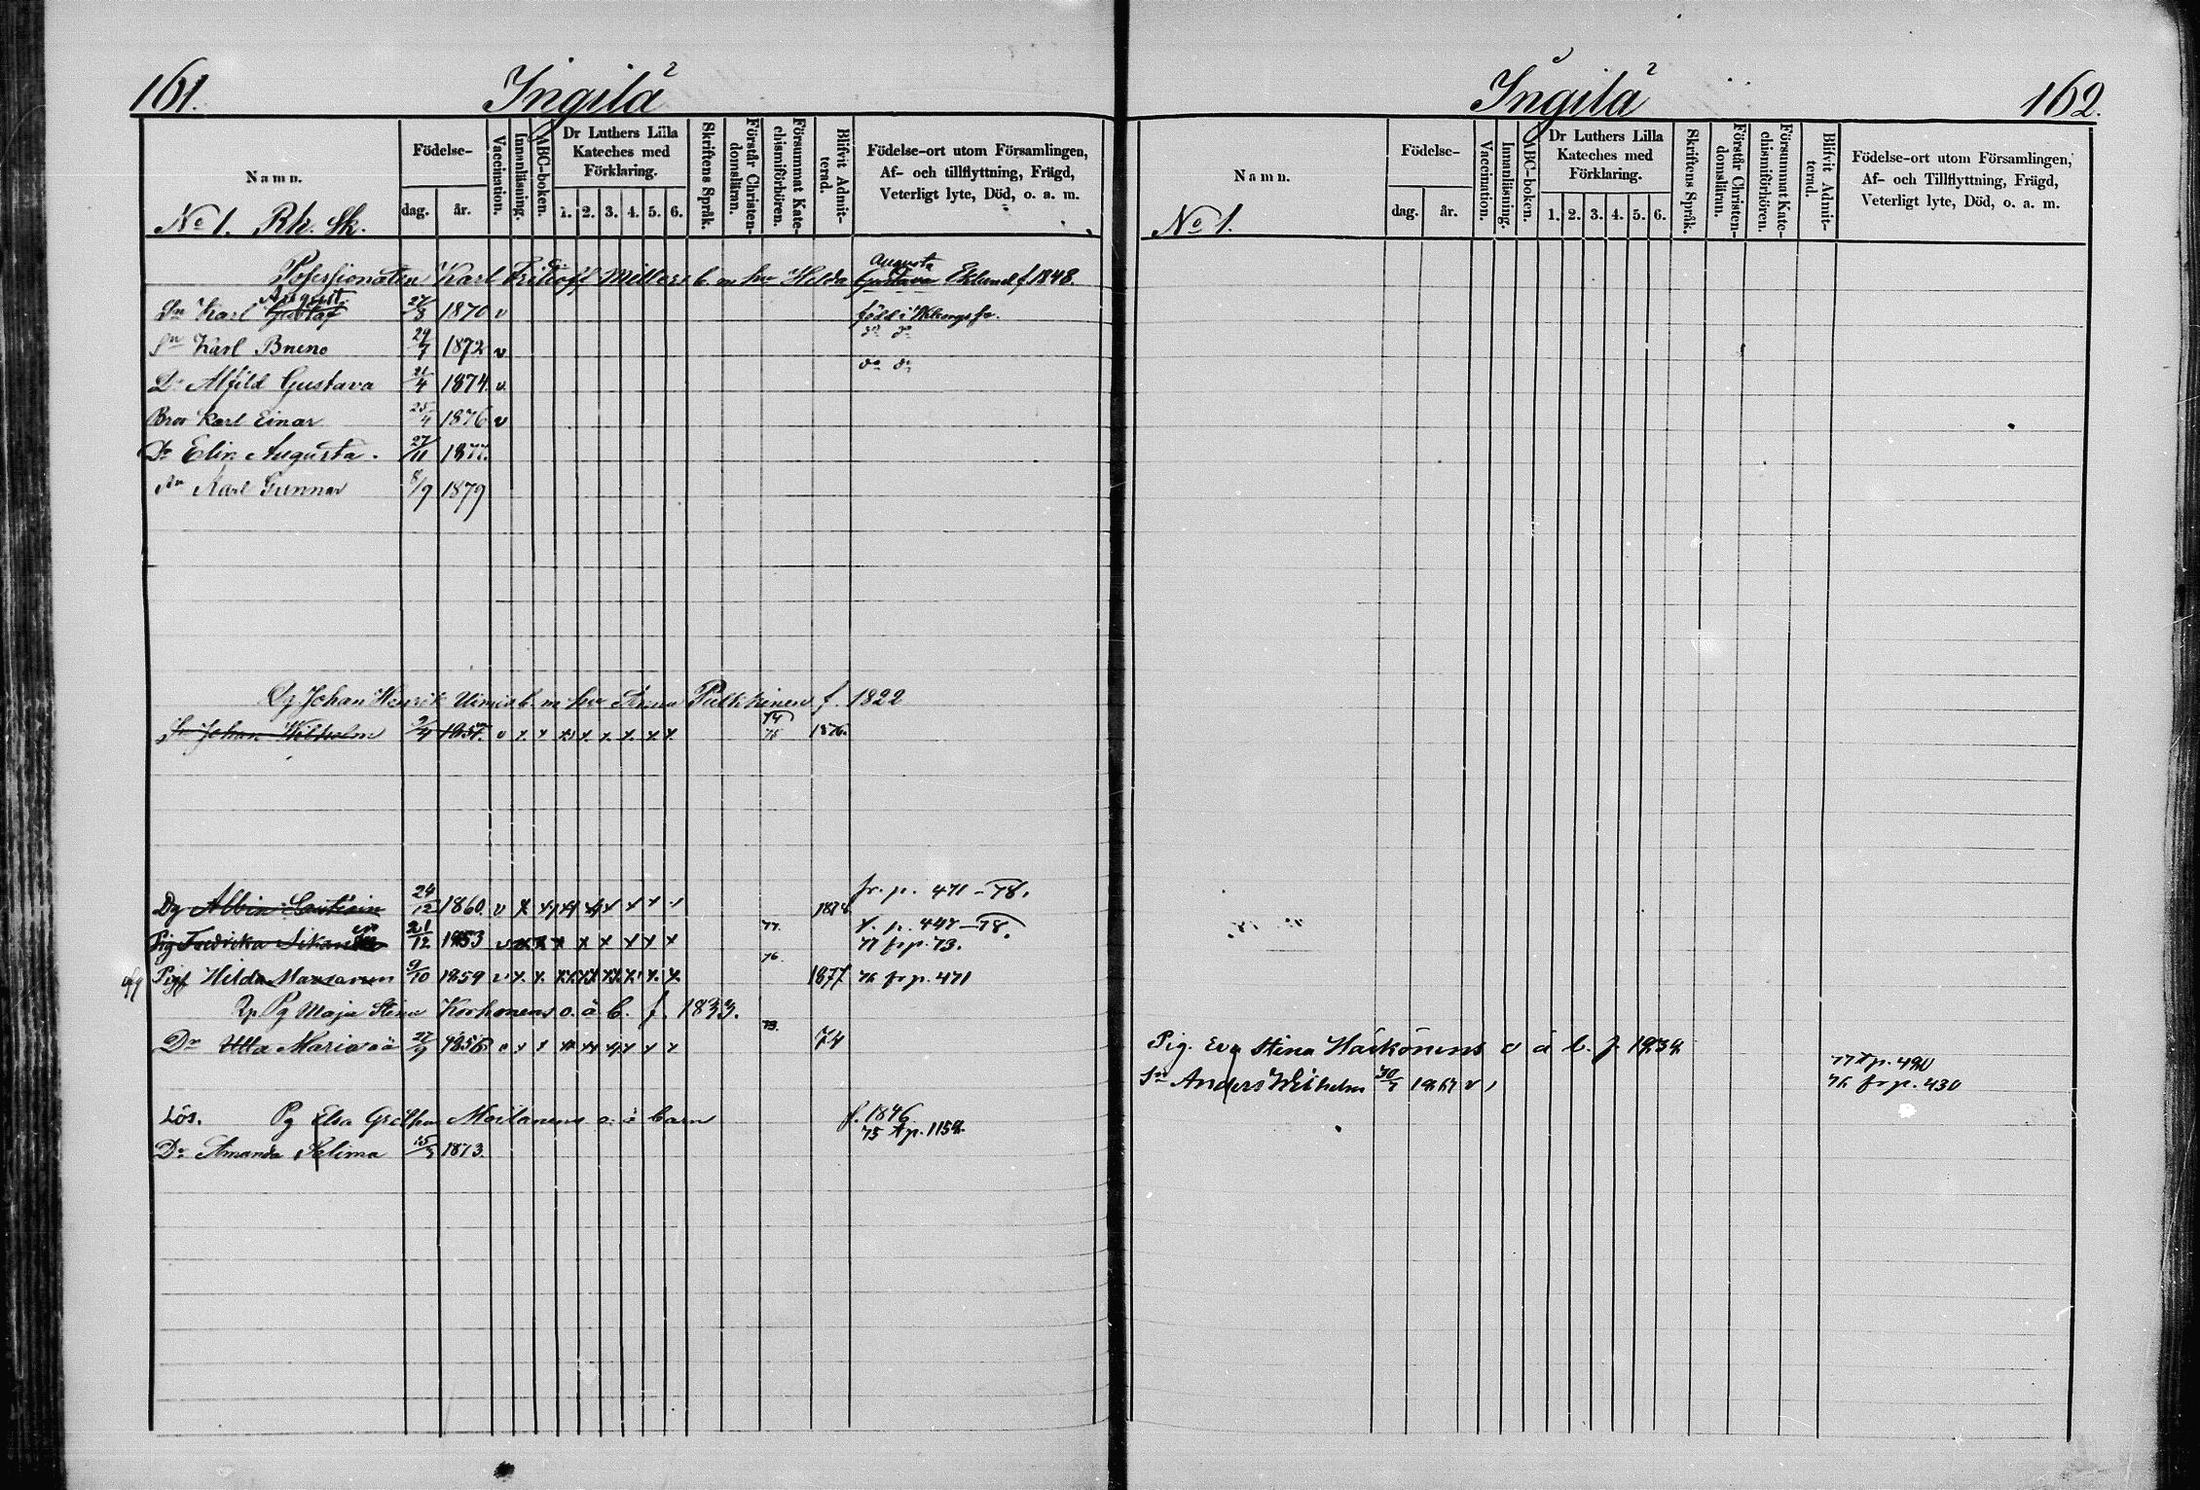 161. Ingila 2
Namn.
Födelse-
dag. år.
Vaccination.
Innanläsning.
ABC-boken.
Dr Luthers Lilla Kateches med Förklaring.
1. 2. 3. 4. 5. 6.
Skriftens Språk.
Förstår Christendomsläran.
Försummat Katechismiförhören.
Blifvit Admitterad.
Födelse-ort utom Församlingen, Af- och tillflyttning, Frägd, Veterligt lyte, Död, o. a. m.
No 1. Rh. Sk.
Possessionaten Karl Fritioff Millers b. m hu Hilda Gustava Augusta Eklund f. 1848.
Sn Karl Gustaf August 27/8 1870 v född i Wiborgs fr.
Sn Karl Bruno 29/7 1872 v do do
Dr Alfild Gustava 21/4 1874. v. do do
Bror Karl Einar 25/4 1876 v
Dr Elin Augusta. 27/11 1877.
Sn Karl Gunnar 8/9 1879
Dg Johan Henrik b. m hu Anna f. 1822
Sn Johan Wilhelm 2/4 1857. v x x x x x x x x 74 75 1876.
Dg Albin 24/12 1860. v x x x x x x x x fr. p. 471 - 78.
Pig Fredrika 21/12 1853 v x x x x x x x x 77. t. p. 447 - 78.
77 fr p. 73.
Pig Hilda 9/10 1859 v x. x. x x x x x. x. 76. 1877 76 fr p. 471
Pg Maja Stina Korhonens o. ä b. f. 1833.
Dr Maria oä 27/9 1858 v x x x x x x x x 73. 74
Lös. Pg Elsa Moilanens o. ä barn f. 1846
75 t p. 1158.
Dr Amanda Selima 15/3 1873.
Ingila 2 162.
Namn.
Födelse-
dag. år.
Vaccination.
Innanläsning.
ABC-boken.
Dr Luthers Lilla Kateches med Förklaring.
1. 2. 3. 4. 5. 6.
Skriftens Språk.
Förstår Christendomsläran.
Försummat Katechismiförhören.
Blifvit Admitterad.
Födelse-ort utom Församlingen, Af- och Tillflyttning, Frägd, Veterligt lyte, Död, o. a. m.
No 1.
Pig. Eva Stina o ä b. f.
77 t p. 490
Sn Anders Wilhelm v 76 fr p. 430